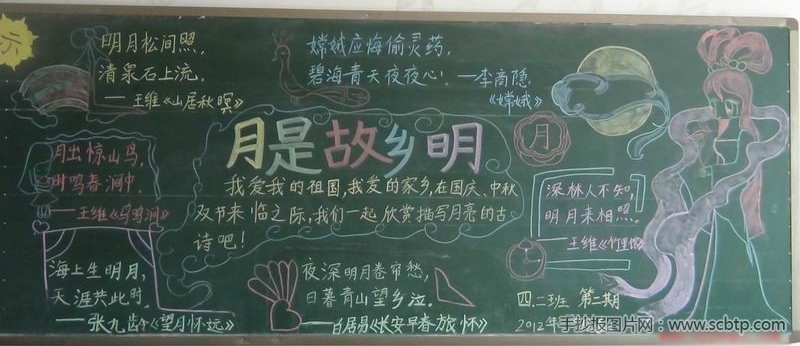 示
明月松间照,
清泉石上流。
——王维《山居秋暝》
嫦娥应悔偷灵药,
碧海青天夜夜心! ——李商隐
《嫦娥》
月出惊山鸟,
时鸣春涧中。
——王维《鸟鸣涧》
月是故乡明
我爱我的祖国,我爱的家乡,在国庆、中秋
双节来临之际,我们一起欣赏描写月亮的古
诗吧!
月
深林人不知,
明月来相照。
——王维《竹里馆》
海上生明月,
天涯共此时。
——张九龄《望月怀远》
夜深明月卷帘愁,
日暮青山望乡泣。
——白居易《长安早春旅怀》
四.二班 第二期
2012年
手抄报图片网:www.scbtp.com